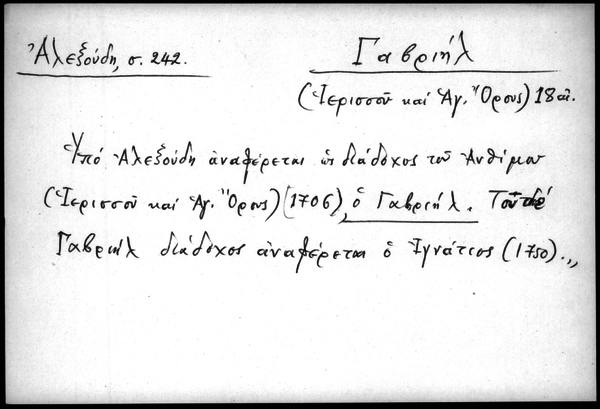 Ἀλεξούδη, σ. 242.
Γαβριήλ
(Ἱερισσοῦ καὶ Ἁγ. Ὄρους) 18 αἰ.
Ὑπό Ἀλεξούδη ἀναφέρεται ὡς διάδοχος τοῦ Ἀνθίμου
(Ἱερισσοῦ καὶ Ἁγ. Ὄρους) (1706), ὁ Γαβριήλ. Τοῦ δέ
Γαβριήλ διάδοχος ἀναφέρεται ὁ Ἰγνάτιος (1750).,,